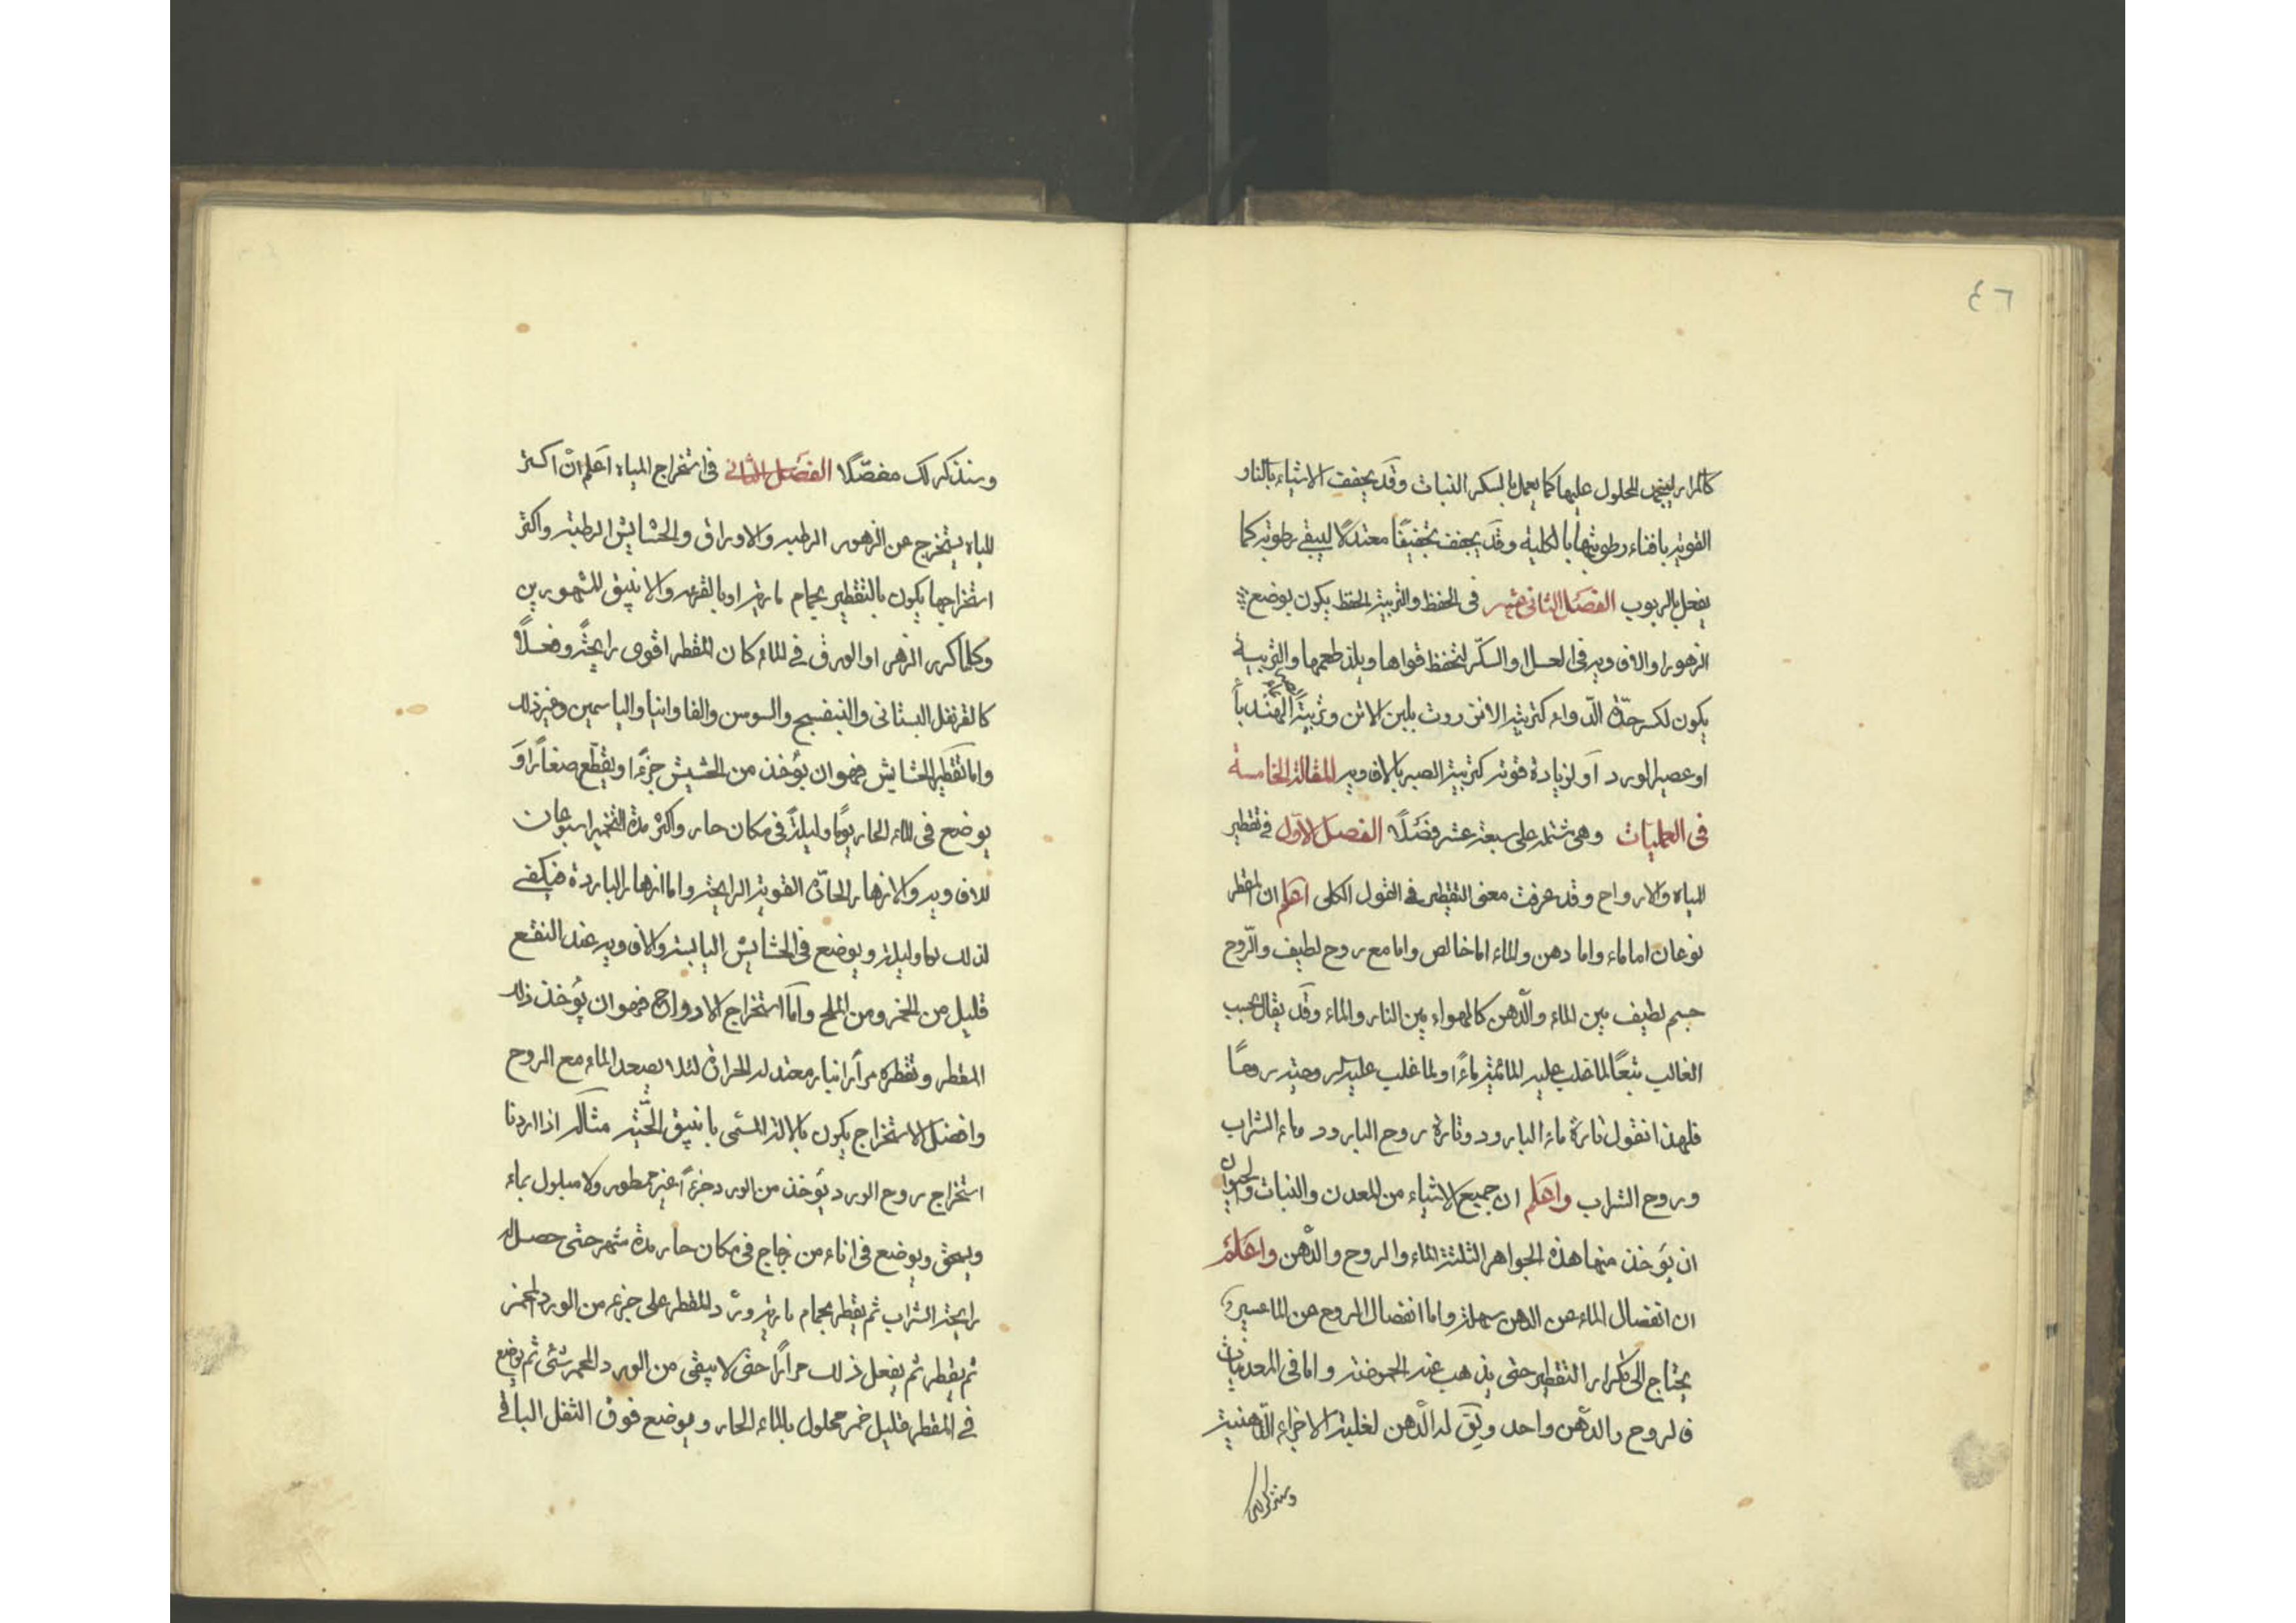 ٤٦
كالمرار ليجمد المحلول عليها كما يعمل بالسكر النبات وقد يجفف الاشياء بالنار
القوية بافناء رطوبتها بالكلية وقد يجفف تجفيفًا معتدلًا ليبقى رطوبة كما
يفعل بالربوب الفصل الثانى عشر فى الحفظ والتربية الحفظ يكون بوضع
الزهور او الافاويه فى العسل او السكّر لتحفظ قواها ويلذ طعمها والتربية
يكون لكسر حدّة الدّواء كتربية الانزروت بلبن الاتن وتربية الهندبا
او عصير الورد او لزيادة قوته كتربية الصبر بالافاويه المقالة الخامسة
فى العمليات وهى مشتملة على سبعة عشر فصلًا الفصل الاول فى تقطير
المياه والارواح وقد عرفت معنى التقطير فى القول الكلى اعلم ان المقطر
نوعان اما ماء واما دهن والماء اما خالص واما مع روح لطيف والرّوح
جسم لطيف بين الماء والدّهن كالهواء بين النار والماء وقد يقال بحسب
الغالب تبعًا لما غلب عليه المائية ماءً او لما غلب عليه الروحية روحًا
فلهذا نقول تارة ماء البارود وتارة روح البارود وماء الشراب
وروح الشراب واعلم ان جميع الاشياء من المعدن والنبات والحيوان
ان يؤخذ منها هذه الجواهر الثلثة الماء والروح والدّهن واعلم
ان انفصال الماء عن الدهن سهلة واما انفصال الروح عن الماء عسيرة
يحتاج الى تكرار التقطير حتى يذهب عنه الحموضة واما فى المعدنيات
فالروح والدّهن واحد ويق له الدّهن لغلبة الاجزاء الدّهنية
وسنذكر لك
وسنذكر لك مفصّلًا الفصل الثانى فى استخراج المياه اعلم انّ اكثر
المياه يستخرج عن الزهور الرطبة والاوراق والحشايش الرطبة واكثر
استخراجها يكون بالتقطير بحمام مارية او بالقرعة والانبيق المشهورين
وكلما كرر الزهر او الورق فى الماء كان المقطر اقوى رايحةً وفعلًا
كالقرنفل البستانى والبنفسج والسوسن والفاوانيا والياسمين وغير ذلك
واما تقطير الحشايش فهو ان يؤخذ من الحشيش جزءًا ويقطّع صغارًا و
يوضع فى الماء الحار يومًا وليلةً فى مكان حار واكثر مدة التخمير اسبوعان
للافاويه والازهار الحارّة القوية الرايحة واما ازهار الباردة فيكفى
لذلك يوما وليلة ويوضع فى الحشايش اليابسة والافاويه عند النقع
قليل من الخمر ومن الملح وامّا استخراج الارواح فهو ان يؤخذ ذلك
المقطر وتقطره مرارا بنار معتدلة الحرارة لئلا يصعد الماء مع الروح
وافضل الاستخراج يكون بالالة المسمى بانبيق الحيّة مثاله اذا اردنا
استخراج روح الورد يؤخذ من الورد جزءًا غير ممطور ولا مبلول بماء
ويسحق ويوضع فى اناء من زجاج فى مكان حار مدة شهر حتى حصل له
رايحة الشراب ثم يقطر بحمام مارية ويرد المقطر على جزء من الورد المخمر
ثم يقطر ثم يفعل ذلك مرارًا حتى لا يبقى من الورد المخمر شئى ثم يوضع
فى المقطر قليل خمر محلول بالماء الحار ويوضع فوق الثفل الباقى